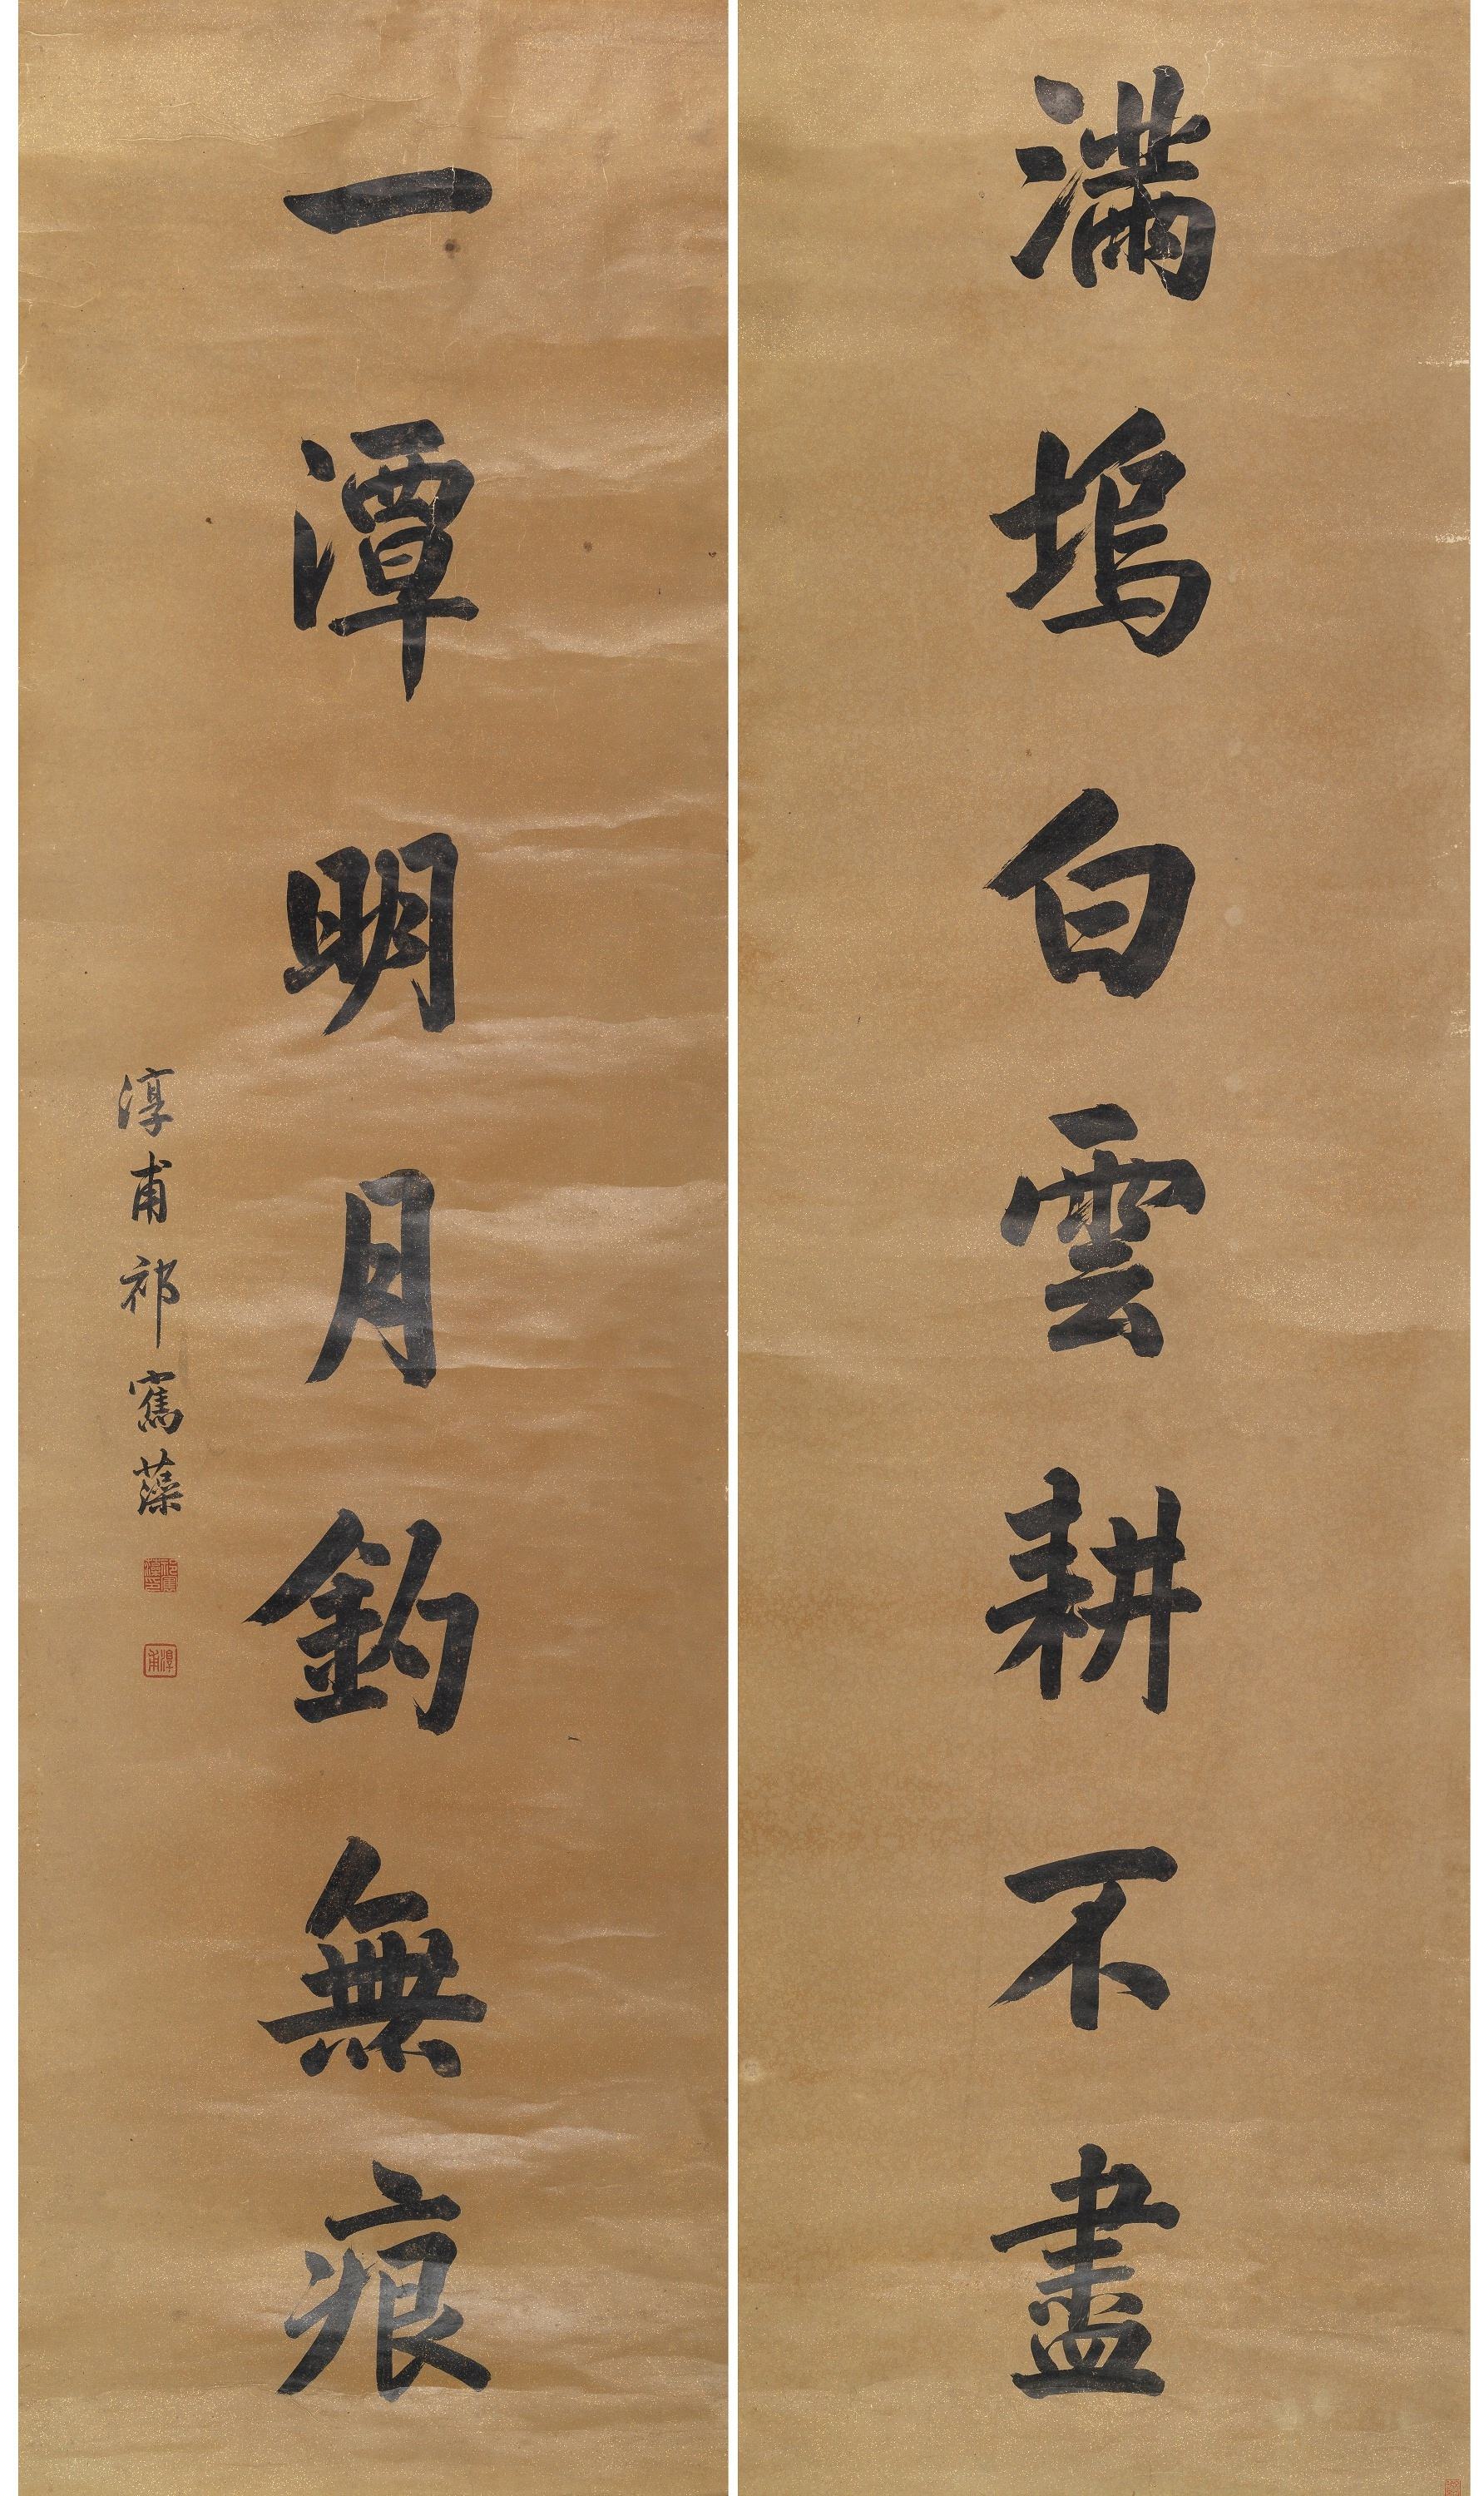 滿塢白雲耕不盡
一潭明月釣無痕
淳甫祁寯藻
祁寯藻印
淳甫